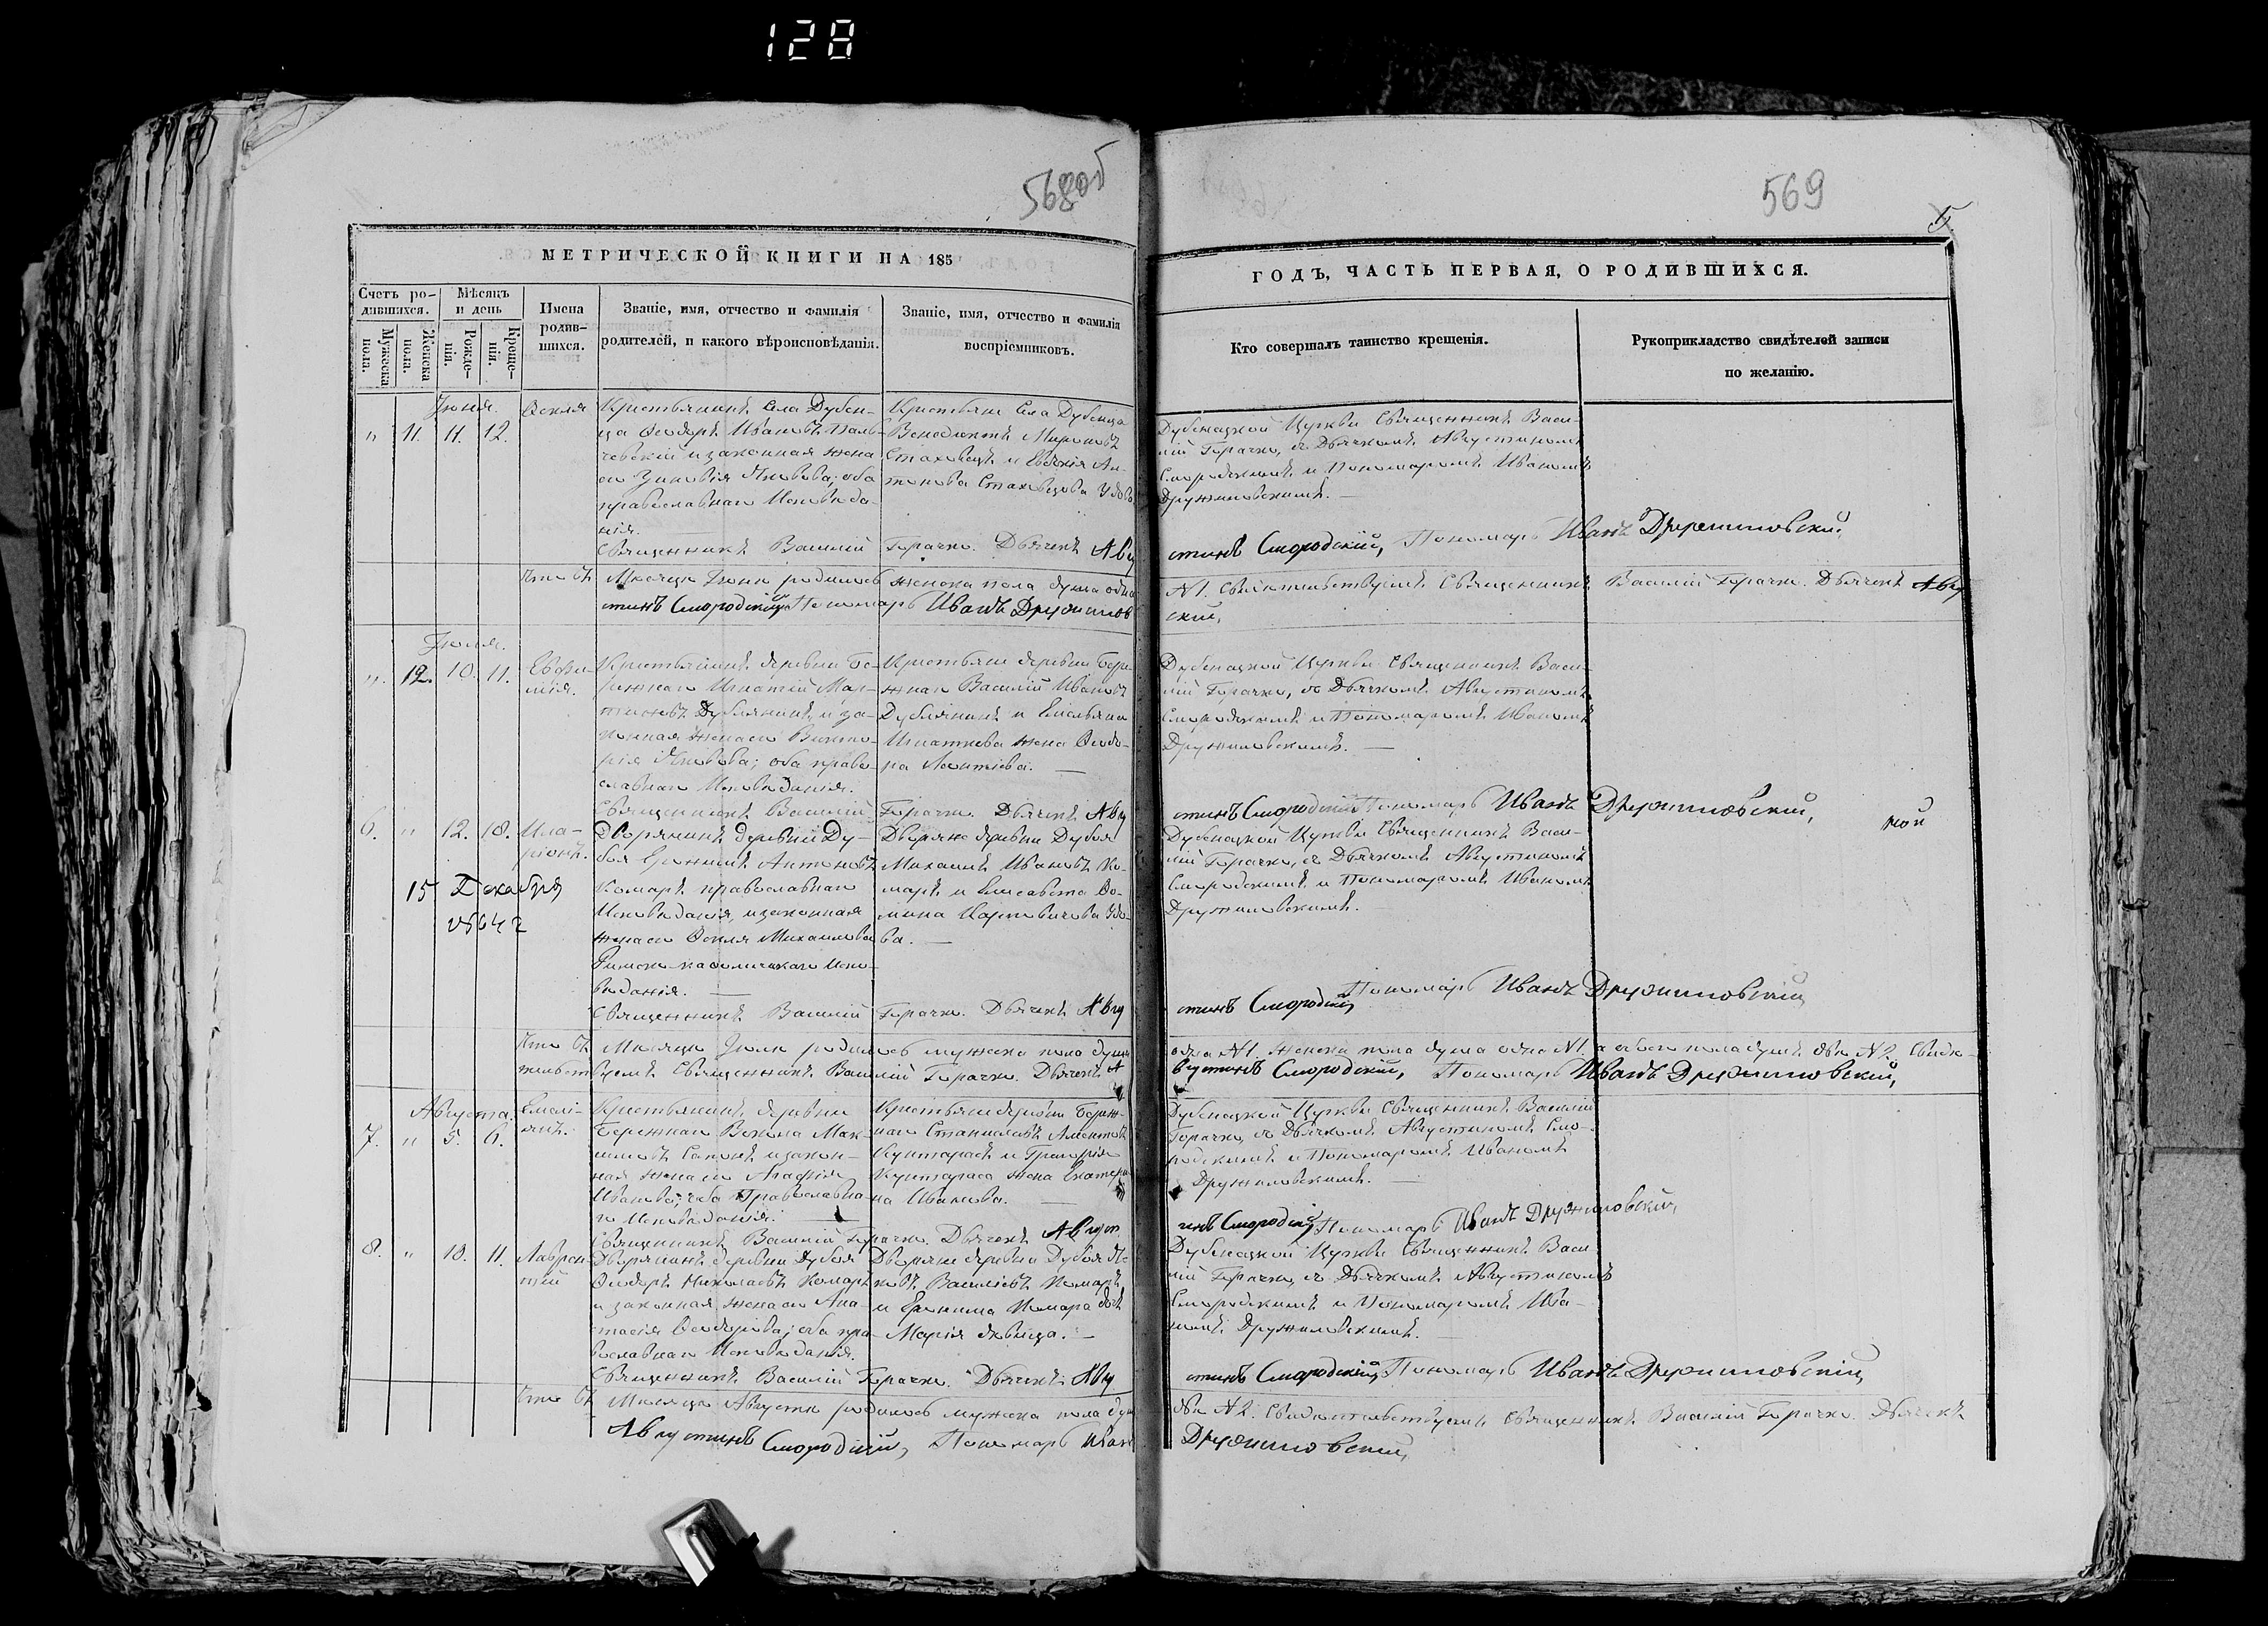 128
568об
569
5
МЕТРИЧЕСКОЙ КНИГИ НА 185
ГОДЪ, ЧАСТЬ ПЕРВАЯ, О РОДИВШИХСЯ.
Счетъ ро-
дившихся.
Мужеска
пола.
Женска
пола.
Мѣсяцъ
и день
Рожде-
нія.
Креще-
нія.
Имена
родив-
шихся.
Званіе, имя, отчество и фамилія
родителей, и какого вѣроисповѣданія.
Званіе, имя, отчество и фамилія
воспріемниковъ.
Кто совершалъ таинство крещенія.
Рукоприкладство свидѣтелей записи
по желанію.
Іюня.
" 11. 11. 12.
Ѳекля
Крестьянинъ села Дубен-
ца Ѳеодоръ Ивановъ
и законная жена
его Зиновія Яковлева; оба
православнаго Исповѣда-
нія.
Крестьяне села Дубенца
Венедиктъ Мироновъ
Стаховецъ и Евдокія Ан-
тонова Стаховцова вдова
Дубенецкой Церкви Священникъ Васи-
лій Горачко, съ Дьячкомъ Августиномъ
Смородскимъ и Пономаремъ Иваномъ
Дружиловскимъ. —
Священникъ Василій Горачко. Дьячекъ Авгу
стинъ Смородскій, Пономарь Иванъ Дружиловскій
Что въ Мѣсяцѣ Іюнѣ родилось женска пола душа одна
№1. Свидѣтельствуемъ Священникъ Василій Горачко. Дьячекъ Авгу
стинъ Смородскій Пономарь Иванъ Дружилов
скій,
Іюля.
". 12. 10. 11.
Евфи-
мія.
Крестьянинъ деревни Бе-
режнаго Игнатій Мар-
тиновъ Дублянинъ, и за-
конная жена его Викто-
рія Яковлева; оба право-
славнаго Исповѣданія.
Крестьяне деревни Бере-
жнаго Василій Ивановъ
Дублянинъ и Емельяна
Игнатьева жена Ѳеодо-
ра Леонтіева. —
Дубенецкой Церкви Священникъ Васи-
лій Горачко, съ Дьячкомъ Августиномъ
Смородскимъ и Пономаремъ Иваномъ
Дружиловскимъ. —
Священникъ Василій Горачко. Дьячекъ Авгу
стинъ Смородскій Пономарь Иванъ Дружиловскій,
6. " 12. 18.
Ила-
ріонъ.
15 Декабря
1864 г
Дворянинъ деревни Ду-
боя Еронимъ Антоновъ
Комаръ православнаго
Исповѣданія, и законная
жена его Ѳекля Михайлова
Римско-католическаго Испо-
вѣданія. —
Дворяне деревни Дубоя
Михаилъ Ивановъ Ко-
маръ и Елисавета Ѳо-
мина вдо-
ва. —
Дубенецкой Церкви Священникъ Васи-
лій Горачко, съ Дьячкомъ Августиномъ
Смородскимъ и Пономаремъ Иваномъ
Дружиловскимъ.
Священникъ Василій Горачко. Дьячекъ Авгу
стинъ Смородскій Пономарь Иванъ Дружиловскій
Что въ Мѣсяцѣ Іюлѣ родилось мужеска пола душа
одна №1. женска пола душа одна №1. а обоего пола душъ двѣ №2. Свидѣ-
тельствуемъ Священникъ Василій Горачко. Дьячекъ А
вгустинъ Смородскій, Пономарь Иванъ Дружиловскій,
Августа.
7. " 5. 6.
Емелі-
янъ.
Крестьянинъ деревни
Бережнаго Мак-
симовъ и закон-
ная жена его
Иванова; оба Православна-
го Исповѣданія.
Крестьяне деревни Береж-
наго Станиславъ
Кунтарасъ и Григорія
Кунтараса жена Екатери-
на Иванова. —
Дубенецкой Церкви Священникъ Василій
Горачко, съ Дьячкомъ Августиномъ Смо-
родскимъ и Пономаремъ Иваномъ
Дружиловскимъ. —
Священникъ Василій Горачко. Дьячекъ Август
инъ Смородскій Пономарь Иванъ Дружиловскій,
8. " 10. 11.
Лаврен-
тій
Дворянинъ деревни Дубоя
Ѳеодоръ Николаевъ Комаръ
и законная жена его Ана-
стасія Ѳеодорова; оба пра-
вославнаго Исповѣданія.
Дворяне деревни Дубоя Я-
ковъ Василіевъ Комаръ
и Еронима Комара дочь
Марія дѣвица. —
Дубенецкой Церкви Священникъ Васи-
лій Горачко, съ Дьячкомъ Августиномъ
Смородскимъ и Пономаремъ Ива-
номъ Дружиловскимъ.
Священникъ Василій Горачко. Дьячекъ Авгу
стинъ Смородскій, Пономарь Иванъ Дружиловскій,
Что въ Мѣсяцѣ Августѣ родилось мужеска пола душ
двѣ №2. Свидѣтельствуемъ Священникъ Василій Горачко. Дьячекъ
Августинъ Смородскій, Пономарь Иван
Дружиловскій,